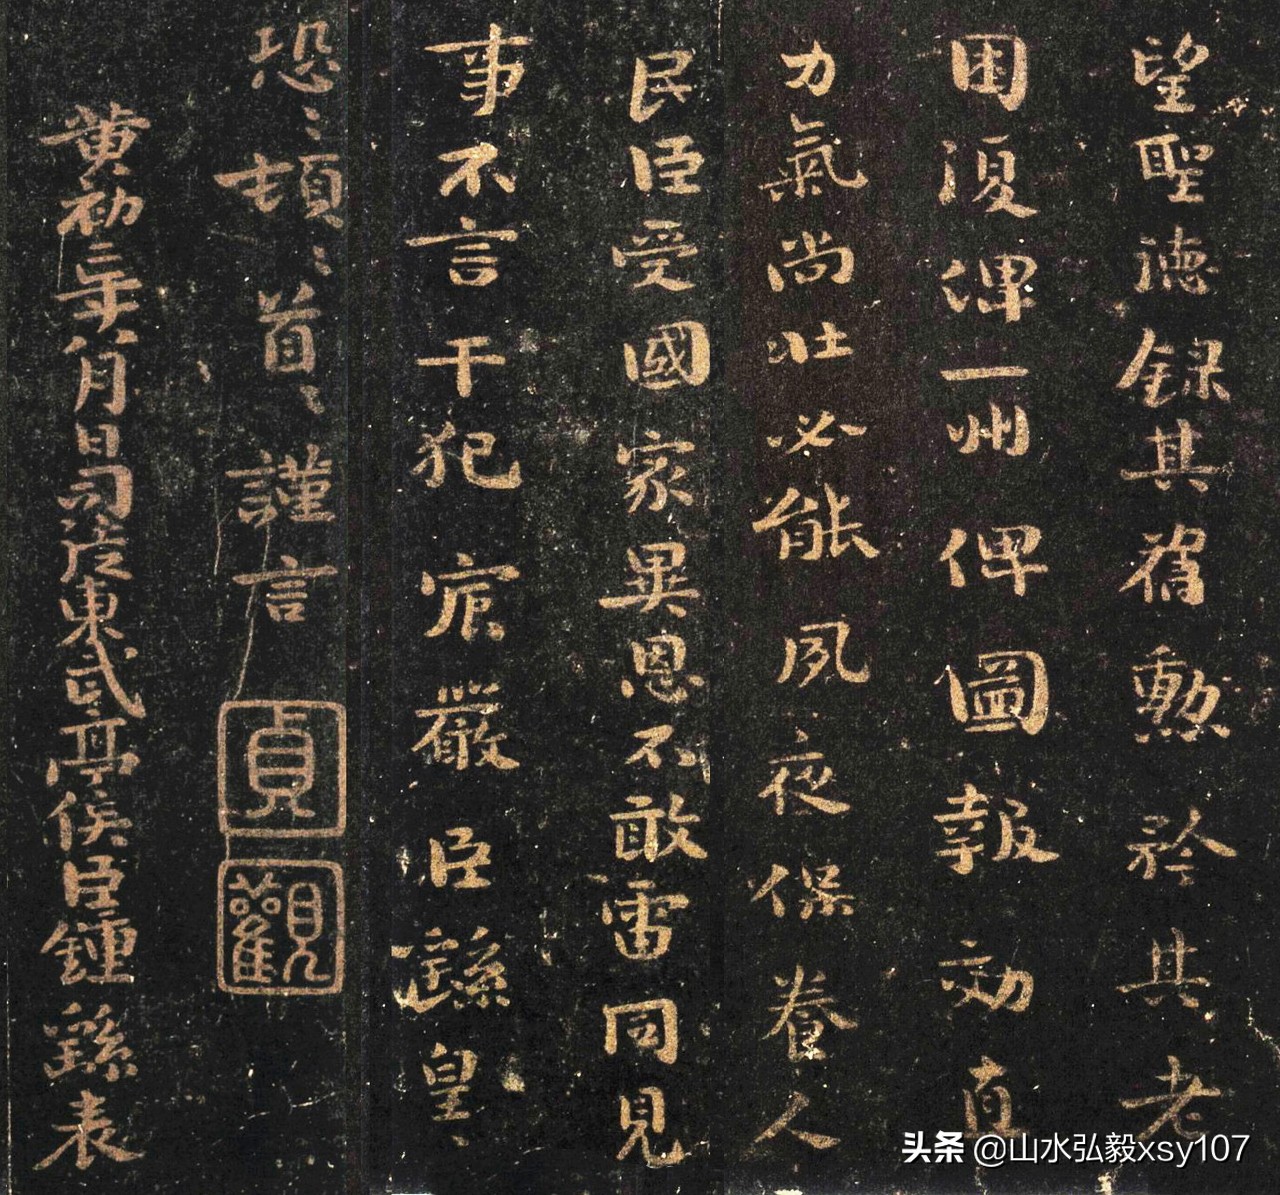 望聖德録其舊勳矜其老
困復俾一州俾圖報効直
力氣尚壯必能夙夜保養人
民臣受國家異恩不敢雷同見
事不言干犯宸嚴臣繇皇〻
恐〻頓〻首〻謹言
貞觀
黄初二年八月日司徒東武亭侯臣鍾繇表
头条 @山水弘毅xsy107